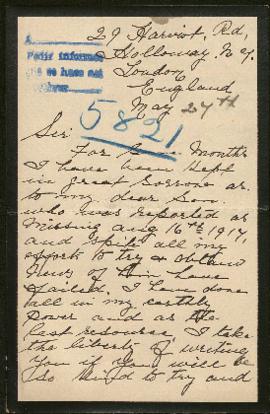 29 Rd,
Holloway N
London
England
May 27th
A
Pedir informes
5821
Sir
For Months
I have been kept
in great Sorrow as
to my dear Son.
who was reported as
Missing Aug 16th 1917,
and spite all my
efforts to try & obtain
News of him have
failed, I have done
all in my earthly
Power and as the
last resource I take
the liberty of writing
you if you will be
So kind to try and